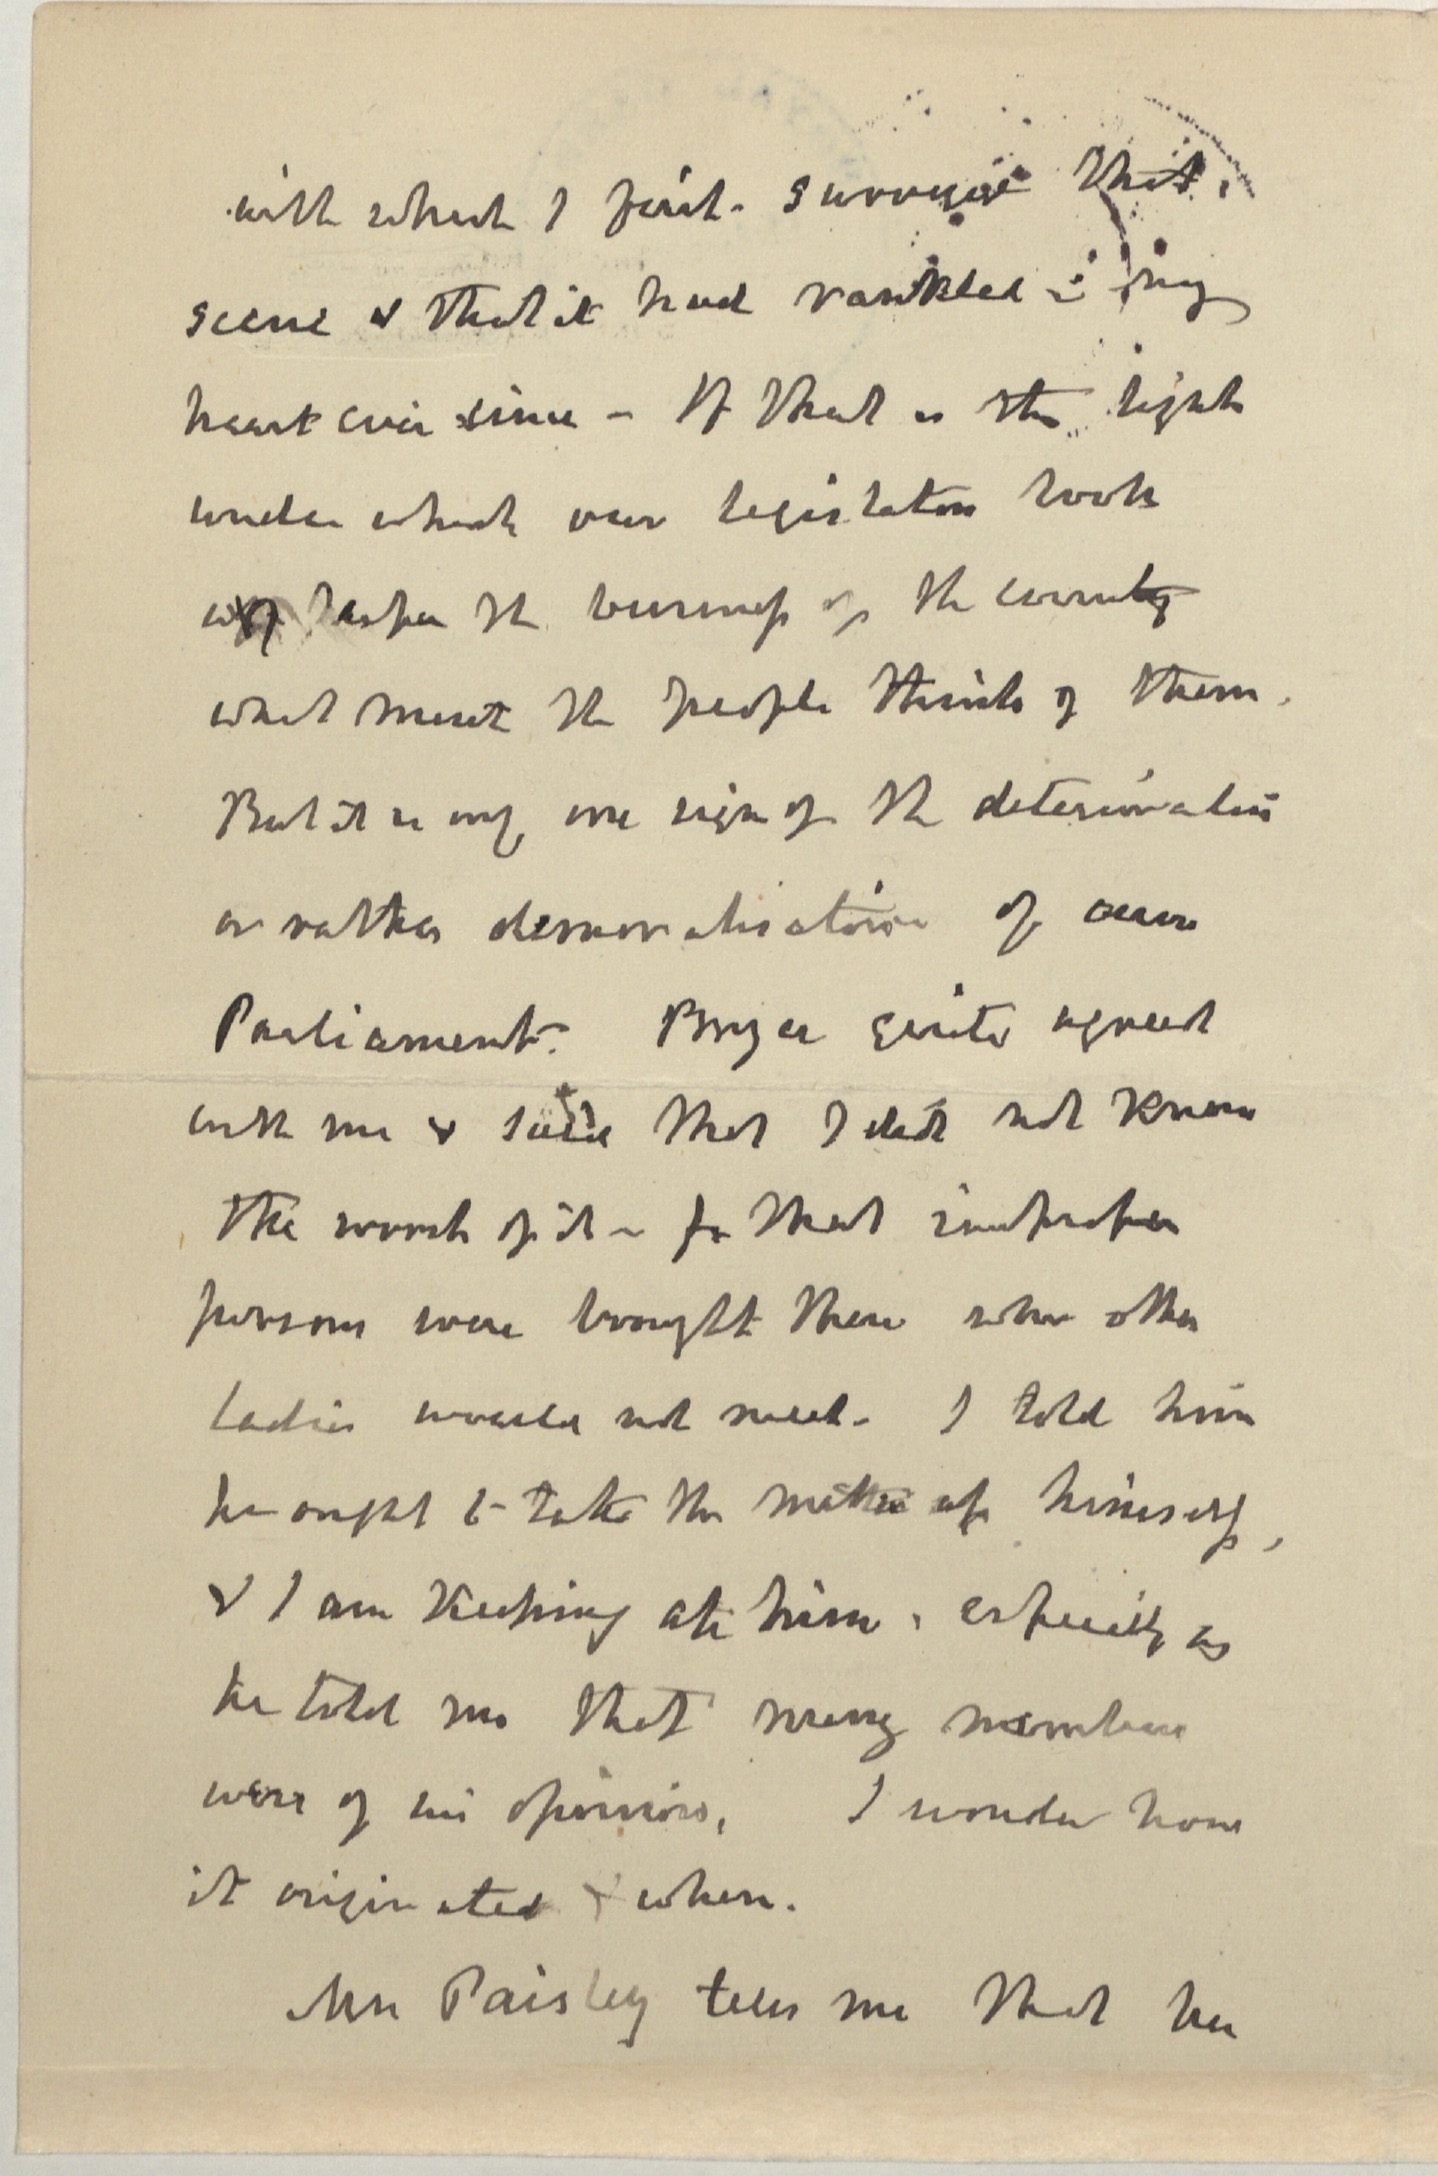 with which I first surveyed that
scene & that it had rankled in my
heart ever since - If that is the light
under which our legislators look
upon the business of the country
what must the people think of them.
But it is only one sign of the deterioration
or rather demoralisation of our
Parliament. Bryce quite agreed
with me & said that I did not know
the worst of it - for that improper
persons were brought there whom other
ladies would not meet. I told him
he ought to take the matter up himself,
& I am keeping at him, especially as
he told me that many members
were of his opinion, I wonder how
it originated & when.
Mrs Paisley tells me that her